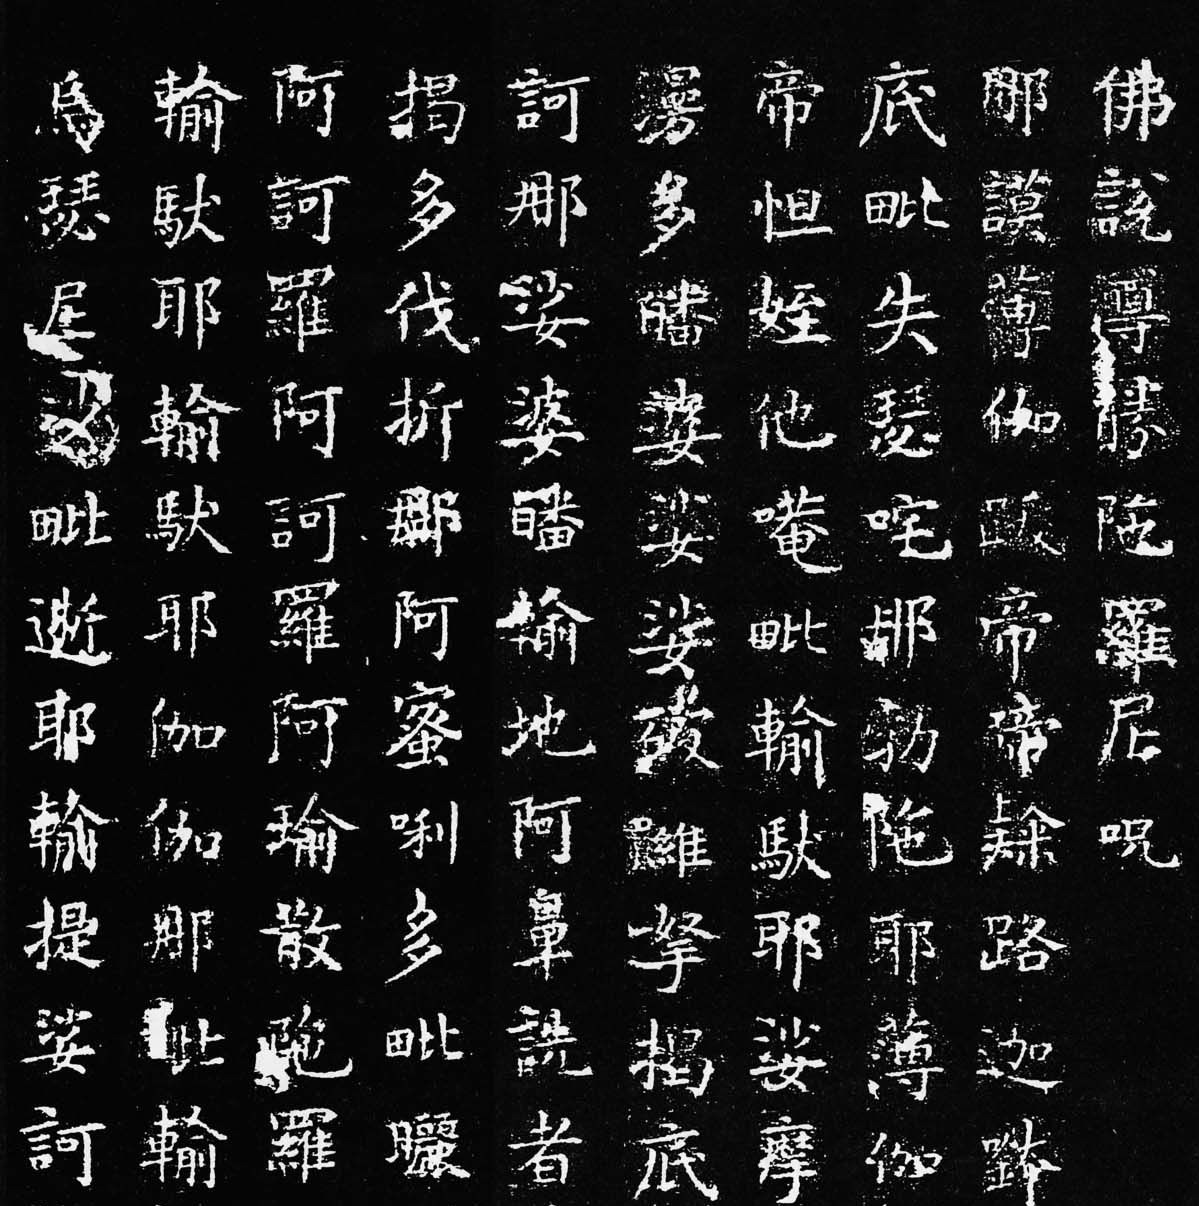 佛說尊勝陁羅尼呪
那謨薄伽跋帝帝隸路迦
底毗失瑟咤耶勃陁耶薄伽
帝怛姪他唵毗輸馱耶娑摩
多皤婆娑娑破羅拏揭底
訶那娑婆皤輸地阿鼻詵者
揭多伐折那阿蜜唎多毗曬
阿訶羅阿訶羅阿瑜散陁羅
輸馱耶輸馱耶伽伽那毗輸
烏瑟尼沙毗逝耶輸提娑訶